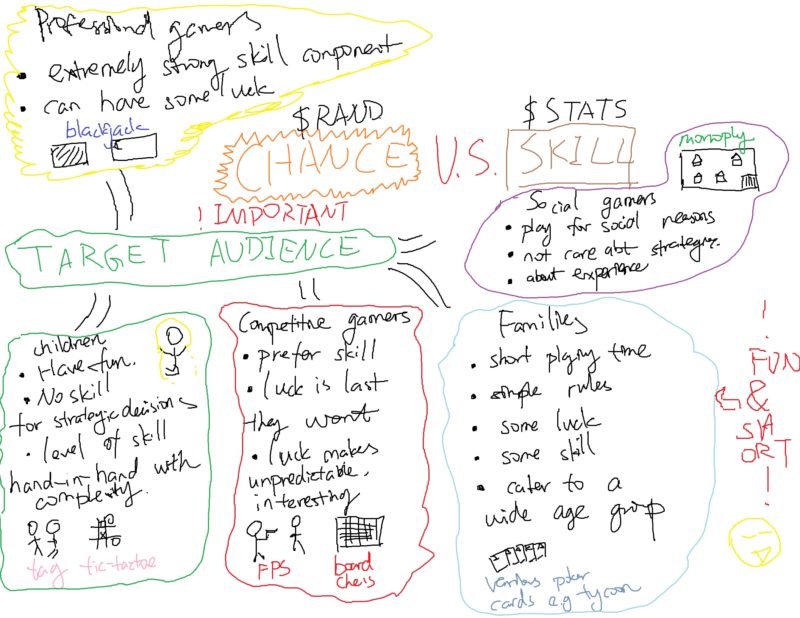 Professional gamers
• extremely strong skill component
• can have some luck
blackjack
$RAND
CHANCE
V.S.
$STATS
SKILL
! IMPORTANT
TARGET AUDIENCE
monoply
Social gamers
• play for social reasons
• not care abt
• about experience
children
• Have fun.
• No skill
for strategic decisions
• level of skill
hand-in-hand with
complexity.
tag tic-tactoe
Competitive gamers
• prefer skill
• luck is last
they want
• luck makes
unpredictable.
interesting
FPS
board
chess
Families
• short playing time
• simple rules
• some luck
• some skill
• cater to a
wide age group
various poker
cards e.g tycoon
!
FUN
&
SHORT
!